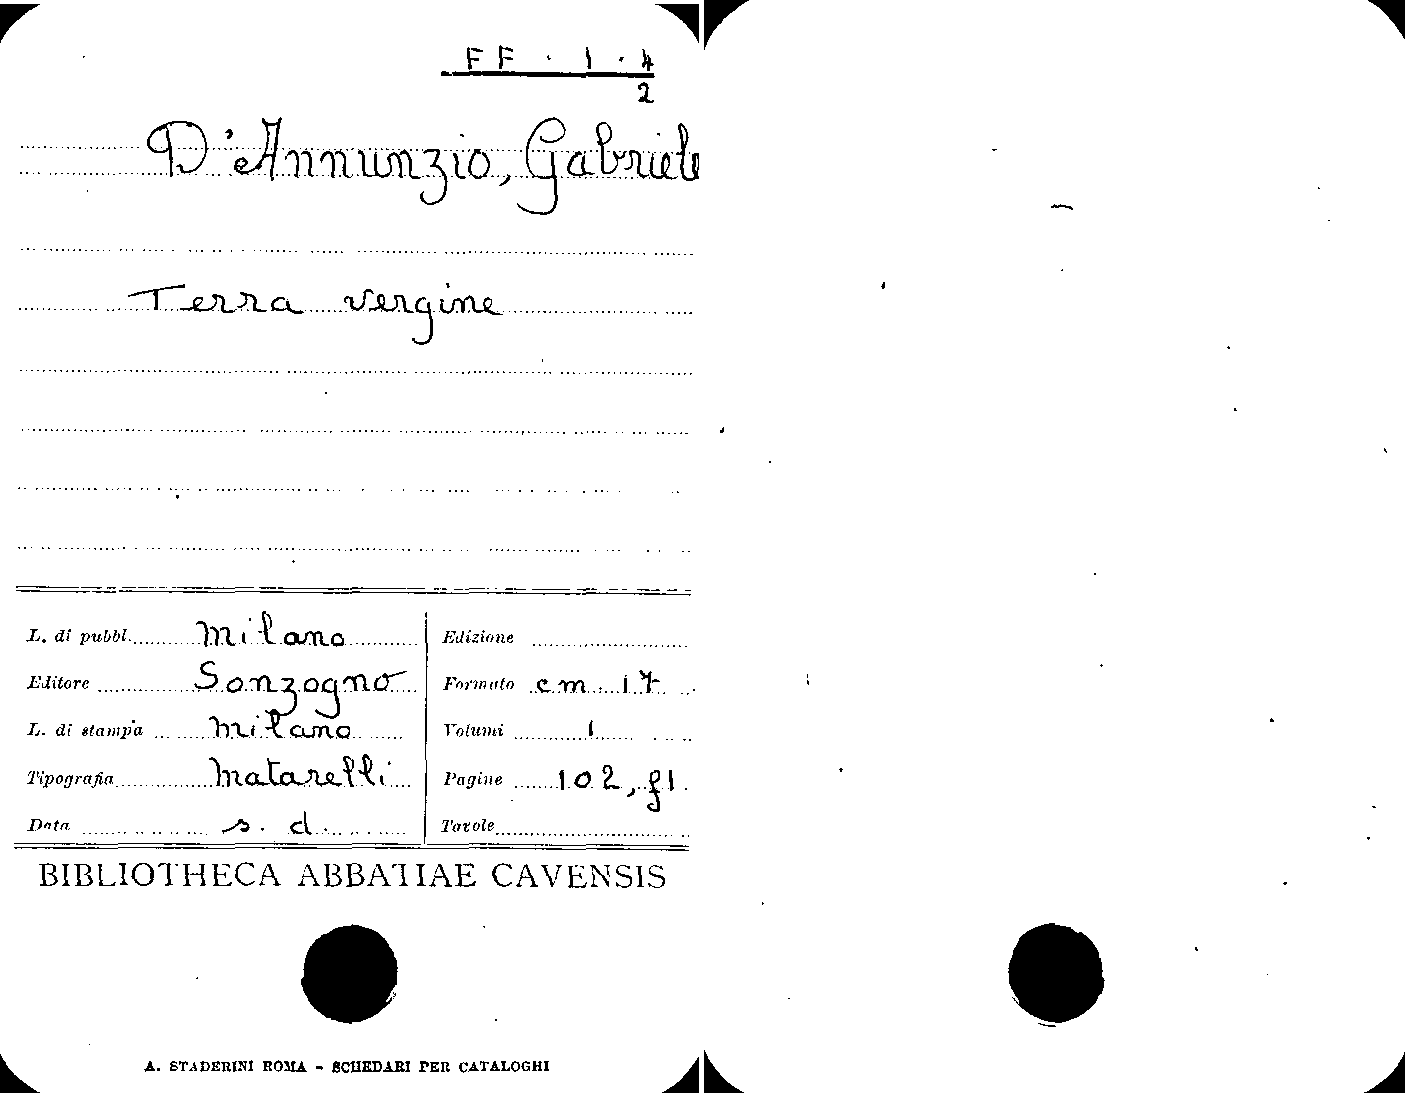 FF · 1 · 4
2
D'Annunzio, Gabriele
Terra vergine
L. di pubbl. Milano
Edizione
Editore Sonzogno
Formato cm. 17
L. di stampa Milano
Volumi 1
Tipografia Matarelli
Pagine 102, f1
Data s. d.
Tavole
BIBLIOTHECA ABBATIAE CAVENSIS
A. STADERINI ROMA - SCHEDARI PER CATALOGHI